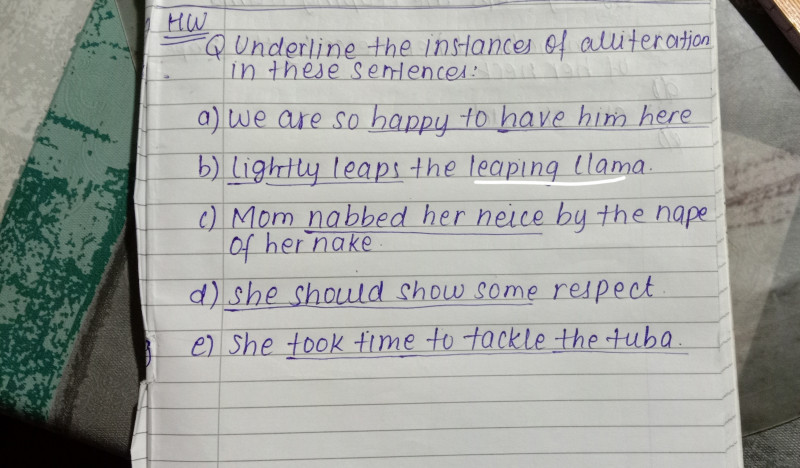 HW
Q Underline the instances of alliteration
in these sentences:
a) We are so happy to have him here
b) Lightly leaps the leaping llama.
c) Mom nabbed her neice by the nape
of her nake.
d) she should show some respect.
e) She took time to tackle the tuba.